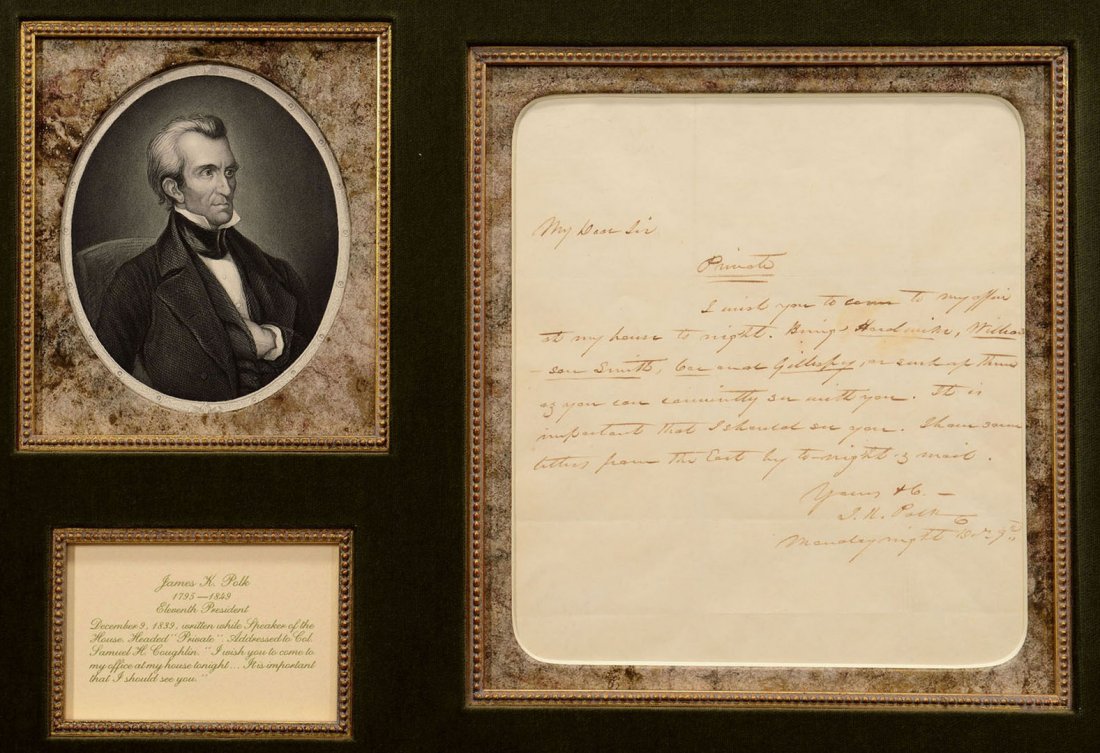 My Dear Sir
Private
I wish you to come to my office
at my house to night. Bring Hardwicke, William-
son Smith, Coe and Gillespey, or such of them
as you can conveniently see with you. It is
important that I should see you. I have some
letters from the East by to-night's mail.
Yours &C.
J. K. Polk
Monday night Dec. 9th
James K. Polk
1795—1849
Eleventh President
December 9, 1839, written while Speaker of the
House. Headed "Private". Addressed to Col.
Samuel H. Coughlin. "I wish you to come to
my office at my house tonight ... It is important
that I should see you."